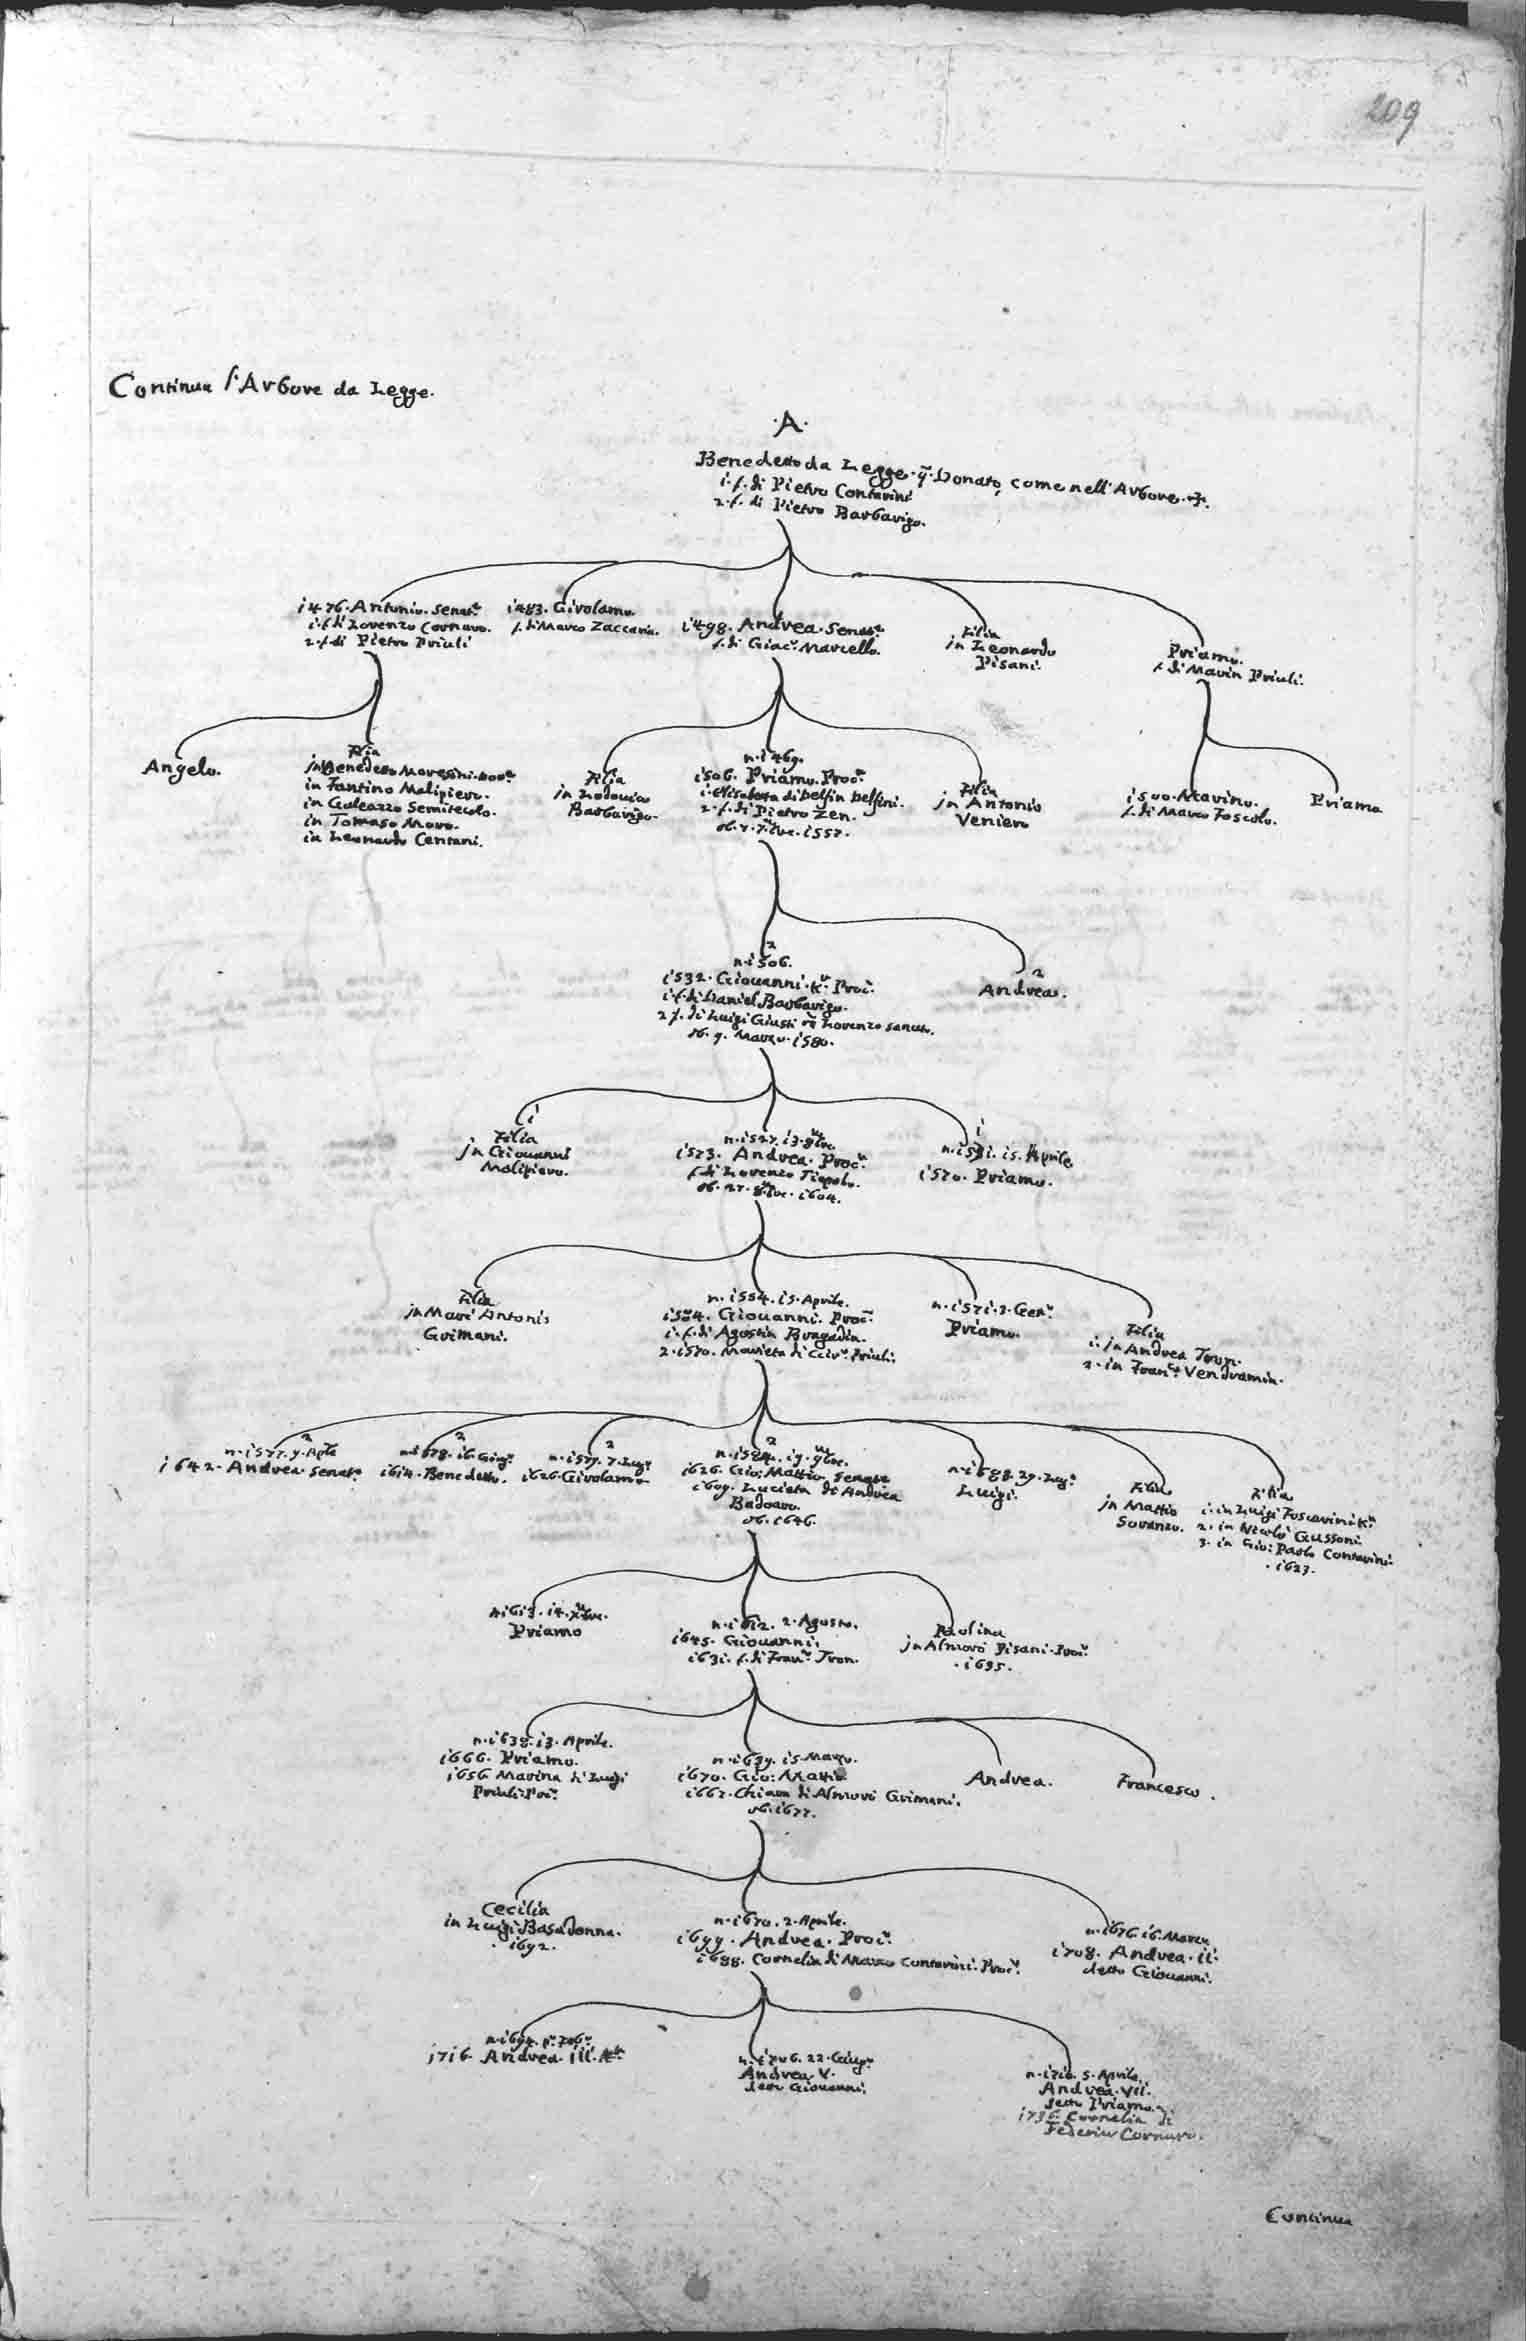 209
Continua l'Arbore da Legge.
·A·
Benedetto da Legge · q̃ · Donato, come nell'Arbore
1. f. di Pietro Contarini
2. f. di Pietro Barbarigo.
i476. Antonio. Senat.r
i. f. di Lorenzo Cornaro.
2. f. di Pietro Priuli
i483. Girolamo.
f. di Marco Zaccaria.
i498. Andrea. Senat.r
f. di Giac.o Marcello.
Filia
in Leonardo
Pisani.
Priamo.
f. di Marin Priuli.
Angelo.
Filia
in Benedetto Moresini
in Fantino Malipiero.
in Galeazzo Semitecolo.
in Tomaso Moro.
in Leonardo Centani.
Filia
in Lodovico
Barbarigo.
n. i469.
i506. Priamo. Proc.r
i. Elisabetta di Delfin Delfini.
2. f. di Pietro Zen.
ob. i557.
Filia
in Antonio
Venier
i500. Marino.
f. di Marco Foscolo.
Priamo
2
n. i506.
i532. Giovanni. K.r Proc.r
i. f. di Daniel Barbarigo.
2 f. di Luigi Giusti Lorenzo Sanuto.
ob. 9. Marzo. i580.
2
Andrea.
i
Filia
in Giovanni
Malipiero.
n. i527. i3. 9bre.
i573. Andrea. Proc.r
f. di Lorenzo Tiepolo.
ob. 27. i604.
i
n. i531. i5. Aprile.
i570. Priamo.
Filia
in Marc'Antonio
Grimani.
n. i554. i5. Aprile.
Giovanni. Proc.r
i. f. di Agostin Bragadin.
2. i570. Marieta di Priuli.
n. i571. 3. Gen.o
Priamo.
Filia
i. in Andrea Tron.
2. in Fran.co Vendramin.
2
n. i577. 9. Aple
i642. Andrea Senat.r
2
n. i578. i6. Giug.o
i614. Benedetto.
2
n. i579. 7. Lug.o
i626. Girolamo
2
n. i584. i9. 9bre.
i626. Gio: Mattio. Senatr
i609. Lucieta di Andrea
Badoaro.
ob. i646.
n. i588. 29. Lug.o
Luigi.
Filia
in Mattio
Soranzo.
Filia
i. in Luigi Foscarini K.r
2. in Nicolò Gussoni.
3. in Gio: Paolo Contarini.
. i623.
n. i613. i4. Xbre.
Priamo
n. i612. 2. Agosto.
i645. Giovanni.
i631. f. di Fran.co Tron.
Paolina
in Almorò Pisani. Proc.r
. i635.
n. i638. i3. Aprile.
i666. Priamo.
i656. Marina di Luigi
Priuli. Proc.r
n. i639. i5. Marzo.
i670. Gio: Mattio
i667. Chiara di Almorò Grimani.
ob. i677.
Andrea.
Francesco.
Cecilia
in Luigi Basadonna.
. i692.
n. i670. 2. Aprile.
i699. Andrea. Proc.r
i688. Cornelia di Marco Contarini. Proc.r
n. i676. i6. Marzo
i708. Andrea. ii.
detto Giovanni.
n. i694. p.o Feb.o
i716. Andrea. iii. K.r
n. i706. 22. Giug.o
Andrea V.
detto Giovanni.
n. i710. 5. Aprile.
Andrea. Vii.
detto Priamo.
Cornelia di
Federico Cornaro.
Continua